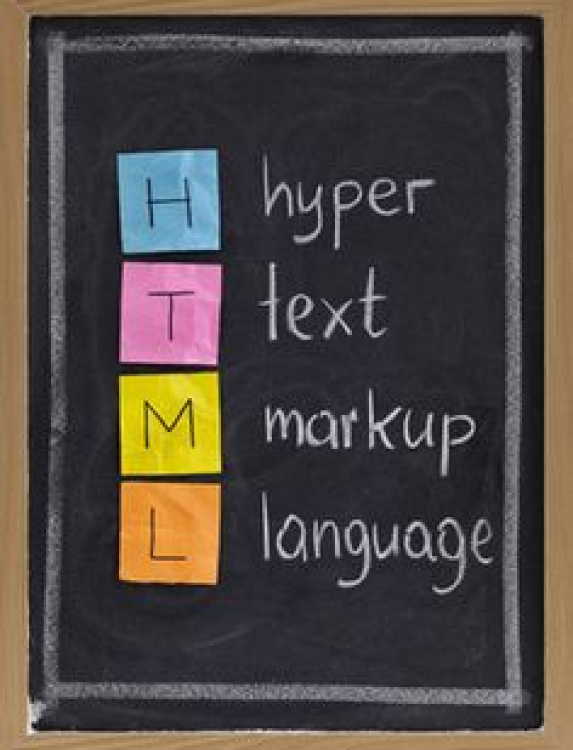 H hyper
T text
M markup
L language